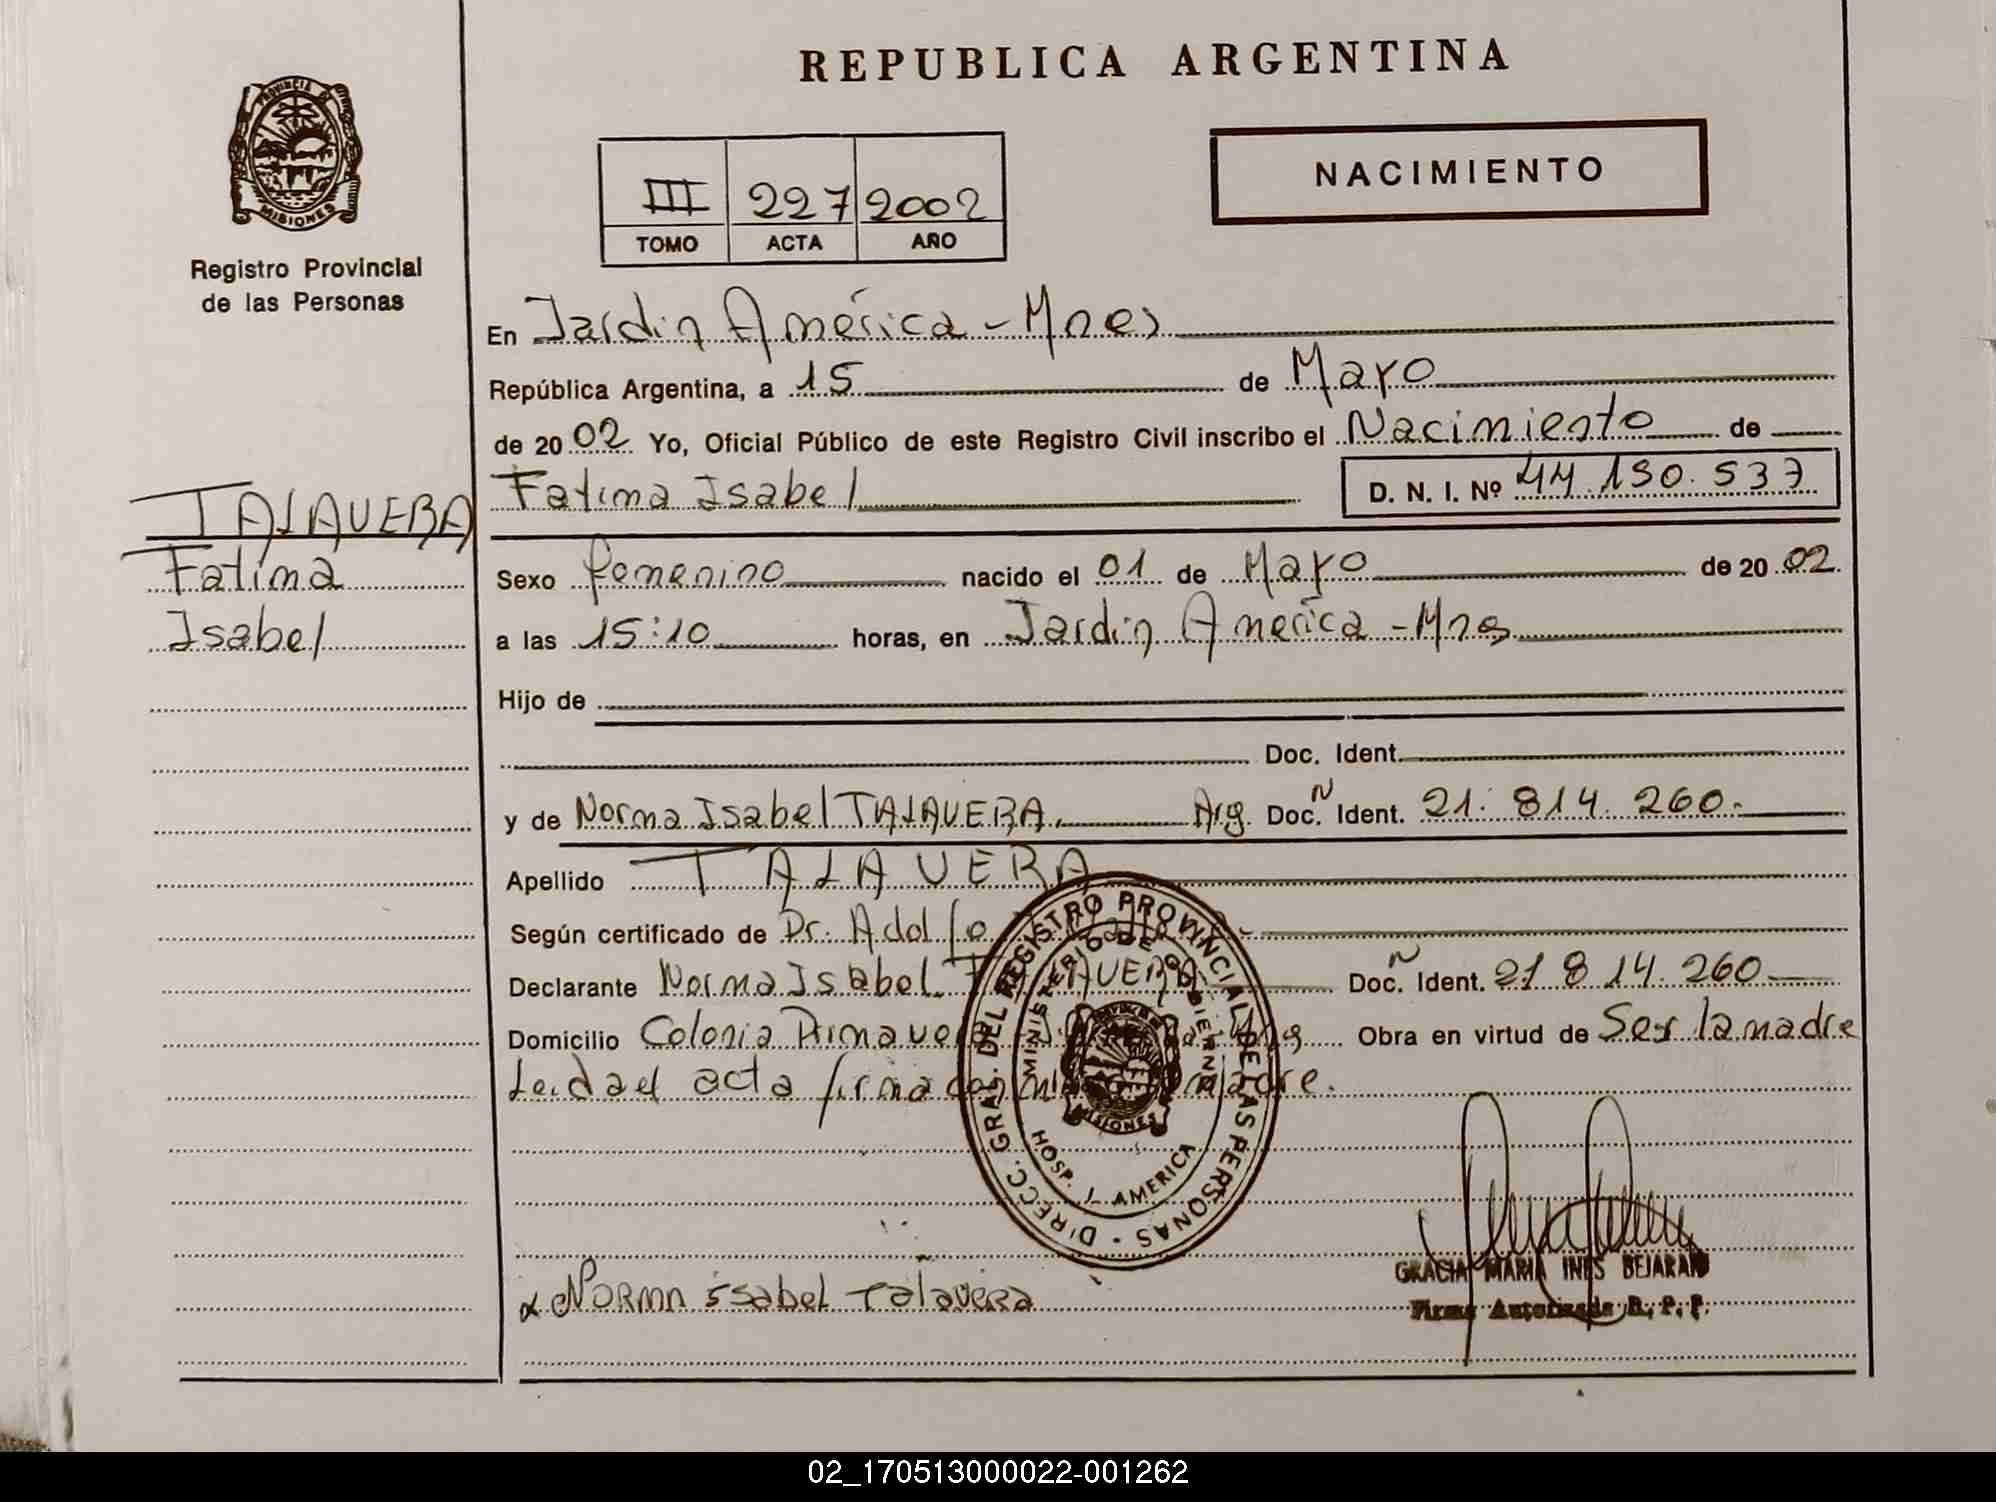 REPUBLICA ARGENTINA
PROVINCIA DE
MISIONES
Registro Provincial
de las Personas
III 227 2002
TOMO ACTA AÑO
NACIMIENTO
En Jardin América - Mnes
República Argentina, a 15 de Mayo
de 2002 Yo, Oficial Público de este Registro Civil inscribo el Nacimiento de
Fatima Isabel D. N. I. Nº 44.130.537
TALAVERA
Fatima
Isabel
Sexo femenino nacido el 01 de Mayo de 2002
a las 15:10 horas, en Jardin América - Mnes
Hijo de
Doc. Ident.
y de Norma Isabel TALAVERA. Arg. Doc. N Ident. 21.814.260.-
Apellido TALAVERA
Según certificado de Dr. Adolfo
Declarante Norma Isabel TALAVERA Doc. N Ident. 21 814.260
Domicilio Colonia Primavera Obra en virtud de Ser la madre
Leida el acta firma con madre.
DIRECC. GRAL. DEL REGISTRO PROVINCIAL DE LAS PERSONAS -
MINISTERIO DE GOBIERNO
MISIONES
HOSP. J. AMERICA
Norma isabel Talavera
GRACIA MARIA INES BEJARANO
Firma Autorizada R. P. P.
02_170513000022-001262